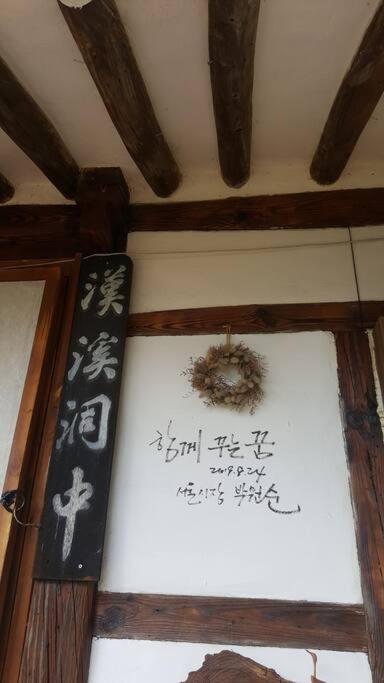 漢溪洞中
함께 꾸는 꿈
2019.8.24
서울시장 박원순